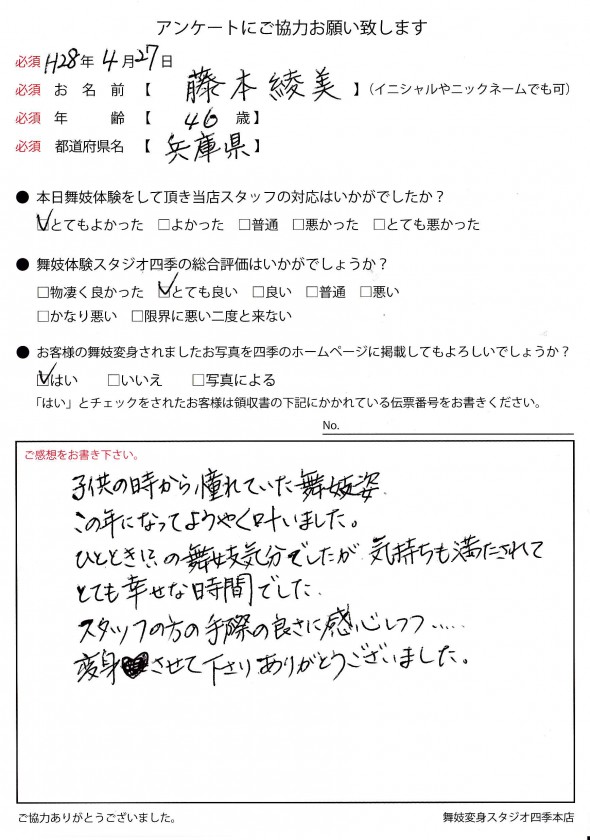 アンケートにご協力お願い致します
必須 H28年 4月27日
必須 お名前【 藤本綾美 】(イニシャルやニックネームでも可)
必須 年齢【 46 歳】
必須 都道府県名【 兵庫県】
● 本日舞妓体験をして頂き当店スタッフの対応はいかがでしたか?
☑とてもよかった □よかった □普通 □悪かった □とても悪かった
● 舞妓体験スタジオ四季の総合評価はいかがでしょうか?
□物凄く良かった ☑とても良い □良い □普通 □悪い
□かなり悪い □限界に悪い二度と来ない
● お客様の舞妓変身されましたお写真を四季のホームページに掲載してもよろしいでしょうか?
☑はい □いいえ □写真による
「はい」とチェックをされたお客様は領収書の下記にかかれている伝票番号をお書きください。
No.
ご感想をお書き下さい。
子供の時から憧れていた舞妓姿.
この年になってようやく叶いました。
ひとときの舞妓気分でしたが 気持ちも満たされて
とても幸せな時間でした.
スタッフの方の手際の良さに感心しつつ……
変身させて下さりありがとうございました。
ご協力ありがとうございました。
舞妓変身スタジオ四季本店